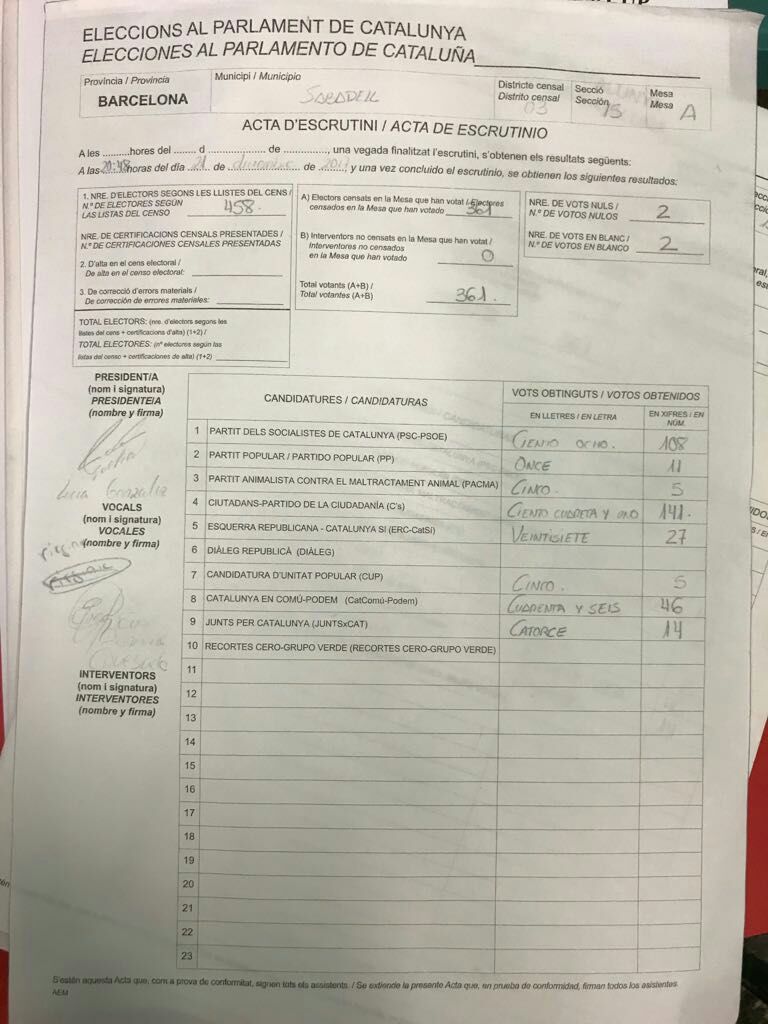 ELECCIONS AL PARLAMENT DE CATALUNYA
ELECCIONES AL PARLAMENTO DE CATALUÑA
Provincia / Provincia
BARCELONA
Municipi / Municipio
SABADELL
Districte censal
Distrito censal
03
Secció
Sección
15
Mesa
Mesa
A
ACTA D'ESCRUTINI / ACTA DE ESCRUTINIO
A les ..........hores del ........ d .................. de .............., una vegada finalitzat l'escrutini, s'obtenen els resultats següents:
A las 20:48 horas del día 21 de de 2017, y una vez concluido el escrutinio, se obtienen los siguientes resultados:
1. NRE. D'ELECTORS SEGONS LES LLISTES DEL CENS /
N.º DE ELECTORES SEGÚN
LAS LISTAS DEL CENSO 458.
NRE. DE CERTIFICACIONS CENSALS PRESENTADES /
N.º DE CERTIFICACIONES CENSALES PRESENTADAS
2. D'alta en el cens electoral /
De alta en el censo electoral:
3. De correcció d'errors materials /
De corrección de errores materiales:
TOTAL ELECTORS: (nre. d'electors segons les
llistes del cens + certificacions d'alta) (1+2) /
TOTAL ELECTORES: (nº electores según las
listas del censo + certificaciones de alta) (1+2)
A) Electors censats en la Mesa que han votat / Electores
censados en la Mesa que han votado 361
B) Interventors no censats en la Mesa que han votat /
Interventores no censados
en la Mesa que han votado 0
Total votants (A+B) /
Total votantes (A+B) 361.
NRE. DE VOTS NULS /
N.º DE VOTOS NULOS 2
NRE. DE VOTS EN BLANC /
N.º DE VOTOS EN BLANCO 2
PRESIDENT/A
(nom i signatura)
PRESIDENTE/A
(nombre y firma)
VOCALS
(nom i signatura)
VOCALES
(nombre y firma)
INTERVENTORS
(nom i signatura)
INTERVENTORES
(nombre y firma)
CANDIDATURES / CANDIDATURAS
VOTS OBTINGUTS / VOTOS OBTENIDOS
EN LLETRES / EN LETRA
EN XIFRES / EN NÚM.
1 PARTIT DELS SOCIALISTES DE CATALUNYA (PSC-PSOE) CIENTO OCHO. 108
2 PARTIT POPULAR / PARTIDO POPULAR (PP) ONCE 11
3 PARTIT ANIMALISTA CONTRA EL MALTRACTAMENT ANIMAL (PACMA) CINCO 5
4 CIUTADANS-PARTIDO DE LA CIUDADANÍA (C's) CIENTO CUARETA Y UNO 141.
5 ESQUERRA REPUBLICANA - CATALUNYA SI (ERC-CatSí) VEINTISIETE 27
6 DIÀLEG REPUBLICÀ (DIÀLEG)
7 CANDIDATURA D'UNITAT POPULAR (CUP) CINCO. 5
8 CATALUNYA EN COMÚ-PODEM (CatComú-Podem) CUARENTA Y SEIS 46
9 JUNTS PER CATALUNYA (JUNTSxCAT) CATORCE 14
10 RECORTES CERO-GRUPO VERDE (RECORTES CERO-GRUPO VERDE)
11
12
13
14
15
16
17
18
19
20
21
22
23
S'estén aquesta Acta que, com a prova de conformitat, signen tots els assistents. / Se extiende la presente Acta que, en prueba de conformidad, firman todos los asistentes.
AEM